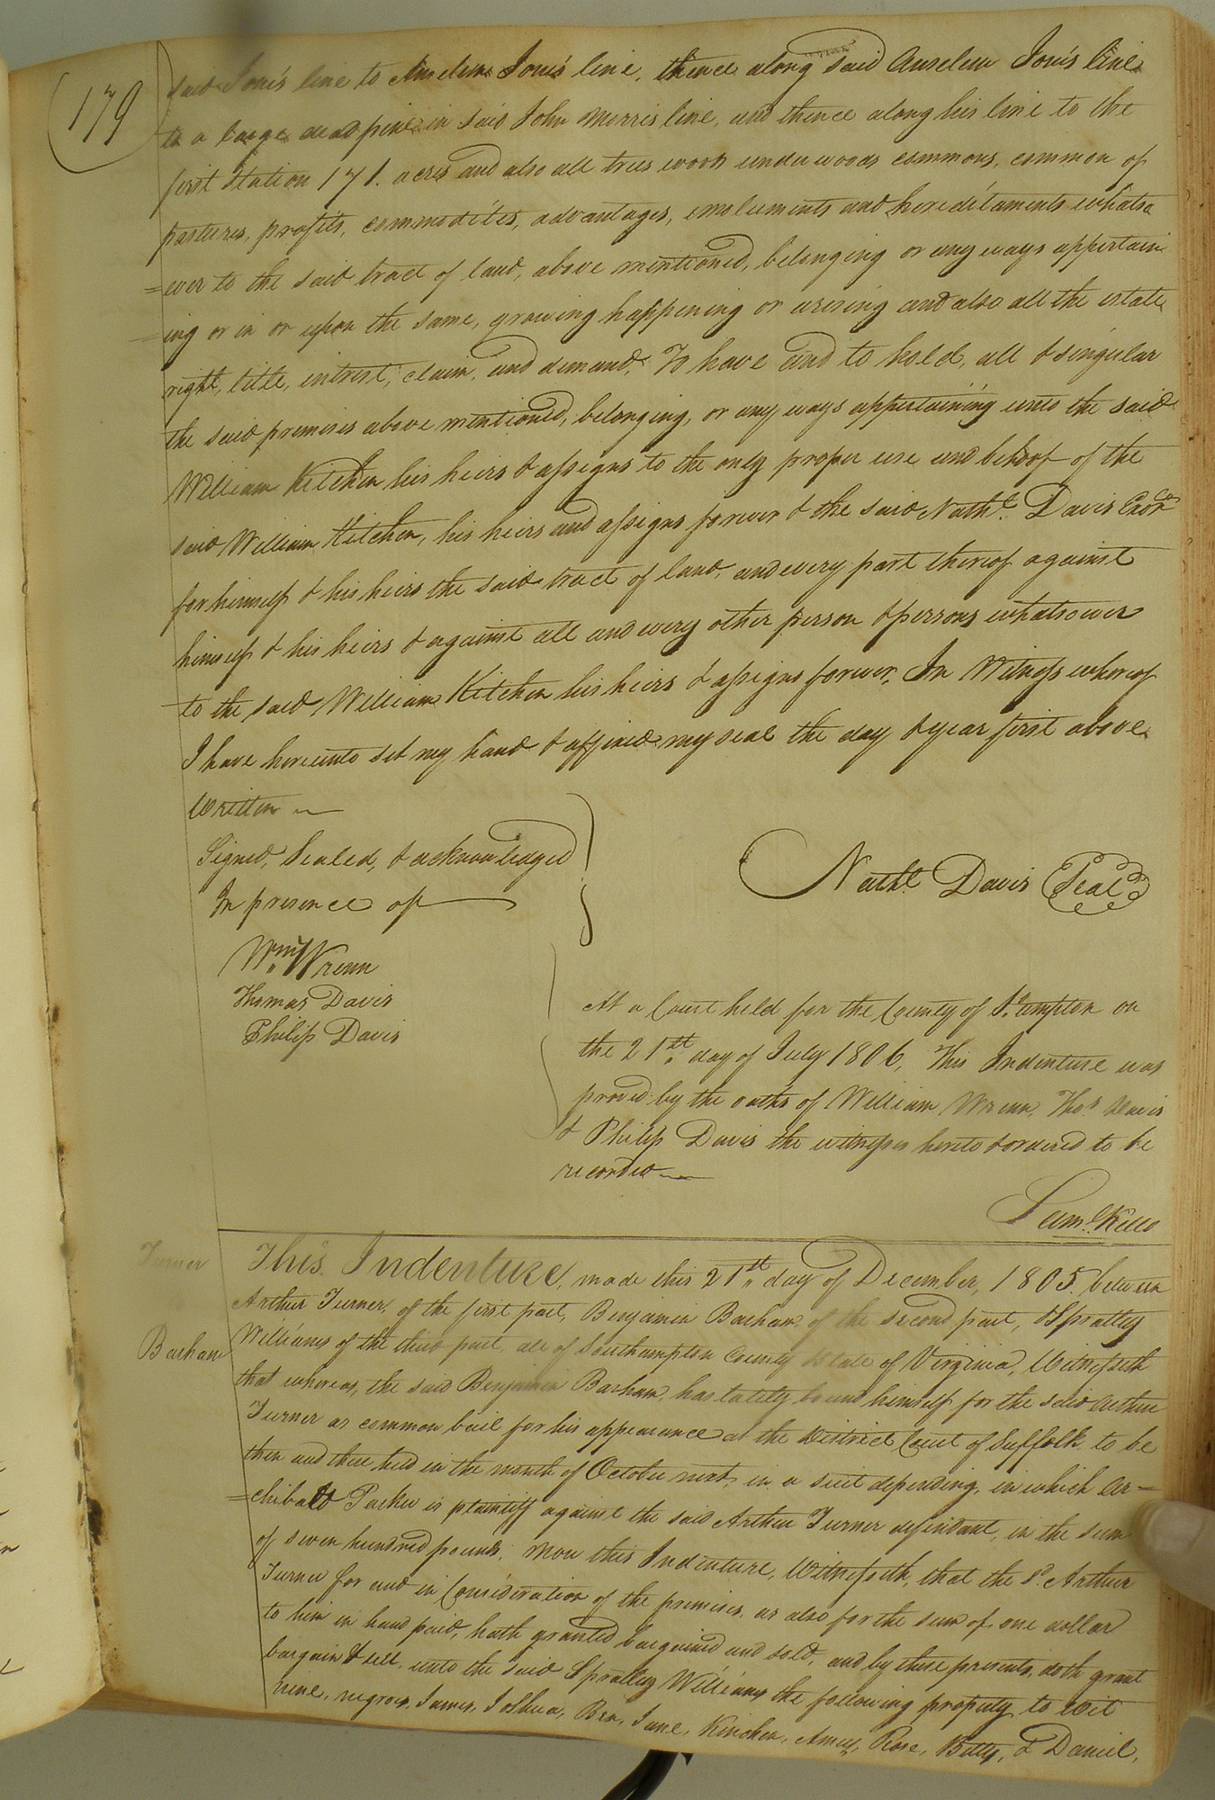 179
said Jones line to Anselem Jones line, thence along said Anselem Jones line
to a large dead pine in said John Morris line, and thence along his line to the
first Station 171. acres and also all trees woods underwoods commons, common of
pastures, profits, commodities, advantages, emoluments and hereditaments whatso
=ever to the said tract of land, above mentioned, belonging or any ways appertain
=ing or in or upon the same, growing happening or arising and also all the estate
right, title, intrest, claim, and demand, To have and to hold, all & singular
the said premises above mentioned, belonging, or any ways appertaining unto the said
William Kitchen his heirs & assigns to the only proper use and behoof of the
said William Kitchen, his heirs and assigns forever & the said Nathl. Davis
for himself & his heirs the said tract of land, and every part thereof against
himself & his heirs & against all and every other person & persons whatsoever
to the said William Kitchen his heirs & assigns forever, In Witness whereof
I have hereunto set my hand & affixed my seal the day & year first above
Written
Signed, Sealed, & acknowledged
In presence of
Nathl. Davis Seal
Wm. Wrenn
Thomas Davis
Philip Davis
At a Court held for the County of S.ampton on
the 21st. day of July 1806, This Indenture was
proved by the oaths of William Wrenn, Thos. Davis
& Philip Davis the witnesses hereto & ordered to be
recorded
Saml. Kello
Turner
Barham
This Indenture, made this 21st. day of December, 1805. between
Arthur Turner, of the first part, Benjamin Barham, of the second part, & Spratley
Williams of the third part, all of Southampton County & State of Virginia, Witnesseth
that whereas, the said Benjamin Barham, has lately bound himself for the said Arthur
Turner as common bail for his appearance at the District Court of Suffolk to be
then and there held in the month of October next, in a suit depending, in which Ar-
=chibald Parker is plaintiff against the said Arthur Turner defendant, in the sum
of seven hundred pounds; Now this Indenture, Witnesseth, that the sd. Arthur
Turner for and in Consideration of the premises, as also for the sum of one dollar
to him in hand paid, hath granted bargained and sold, and by these presents, doth grant
bargain & sell, unto the said Spratley Williams the following property to wit
nine, negroes, James, Joshua, Ben, Jane, Kinchen, Amey, Rose, Betty, & Daniel,